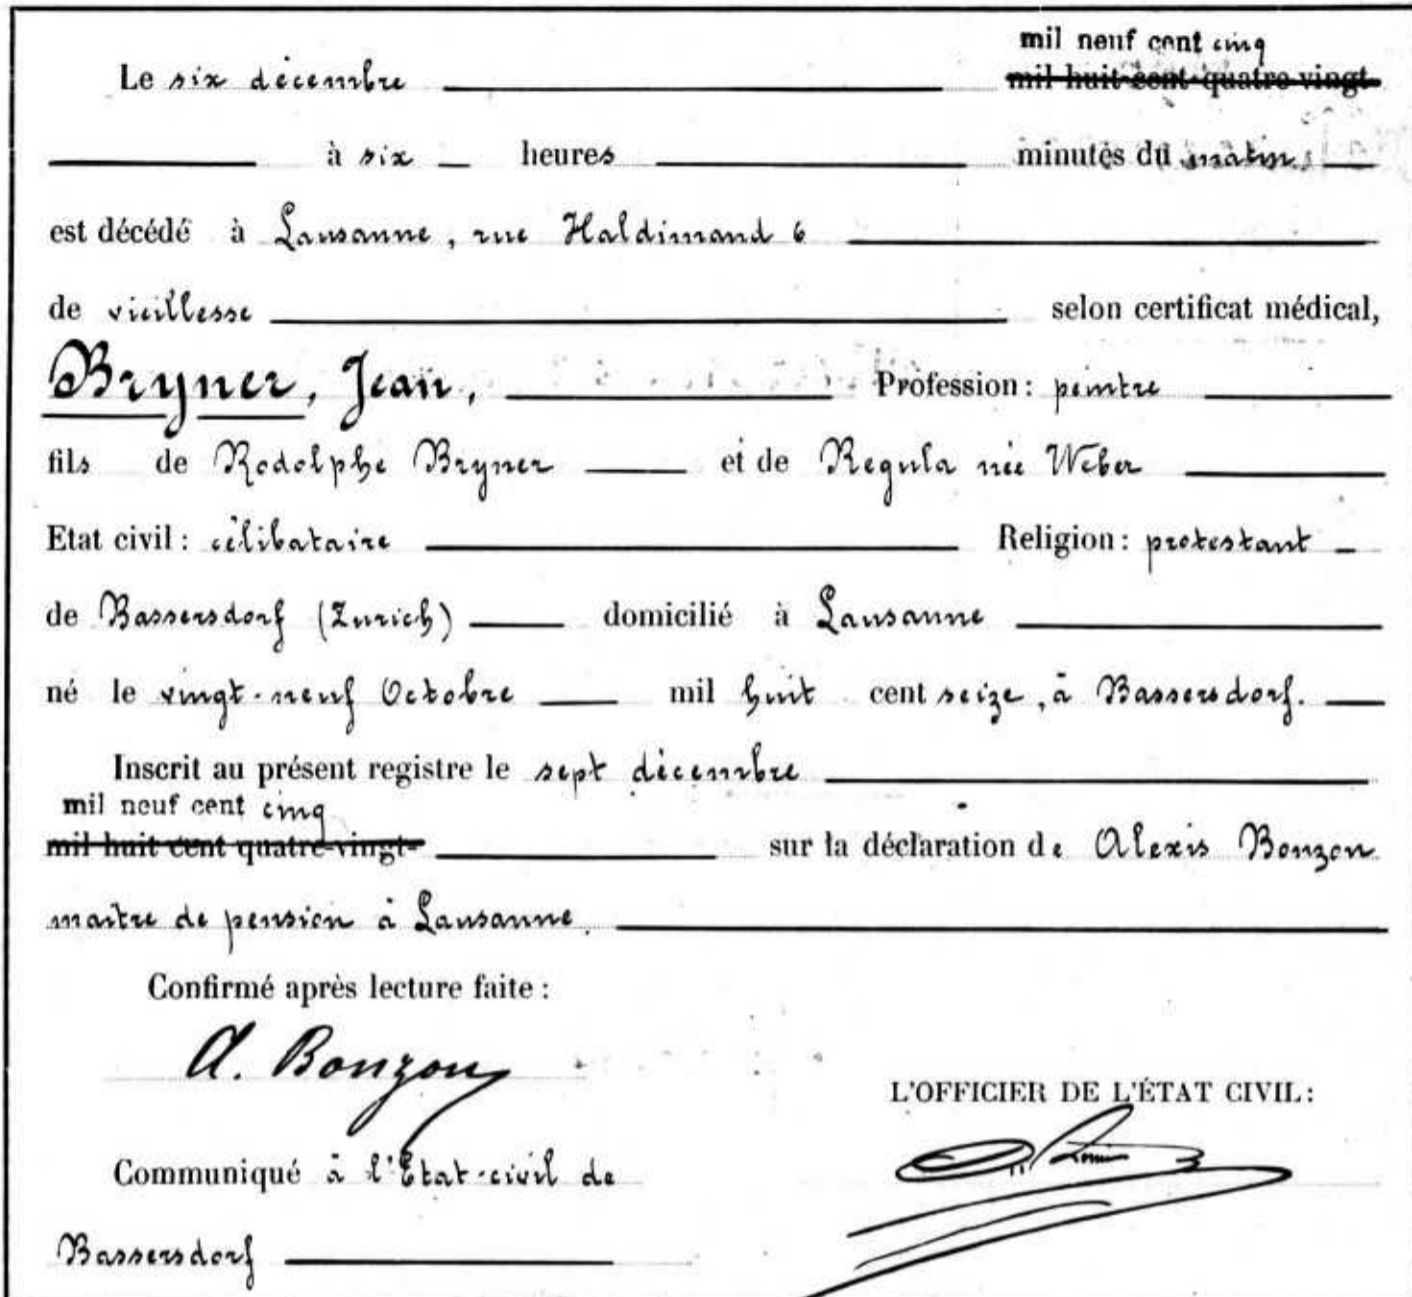 mil neuf cent cinq
Le six décembre mil huit cent quatre vingt
à six heures minutes du matin
est décédé à Lausanne, rue Haldimand 6
de vieillesse selon certificat médical,
Bryner, Jean, Profession: peintre
fils de Rodolphe Bryner et de Regula née Weber
Etat civil: célibataire Religion: protestant
de Bassersdorf (Zurich) domicilié à Lausanne
né le vingt-neuf Octobre mil huit cent seize, à Bassersdorf.
Inscrit au présent registre le sept décembre
mil neuf cent cinq
mil huit cent quatre-vingt- sur la déclaration de Alexis Bonzon
maître de pension à Lausanne.
Confirmé après lecture faite:
A. Bonzon
L'OFFICIER DE L'ÉTAT CIVIL:
Communiqué à l'Etat-civil de
Bassersdorf